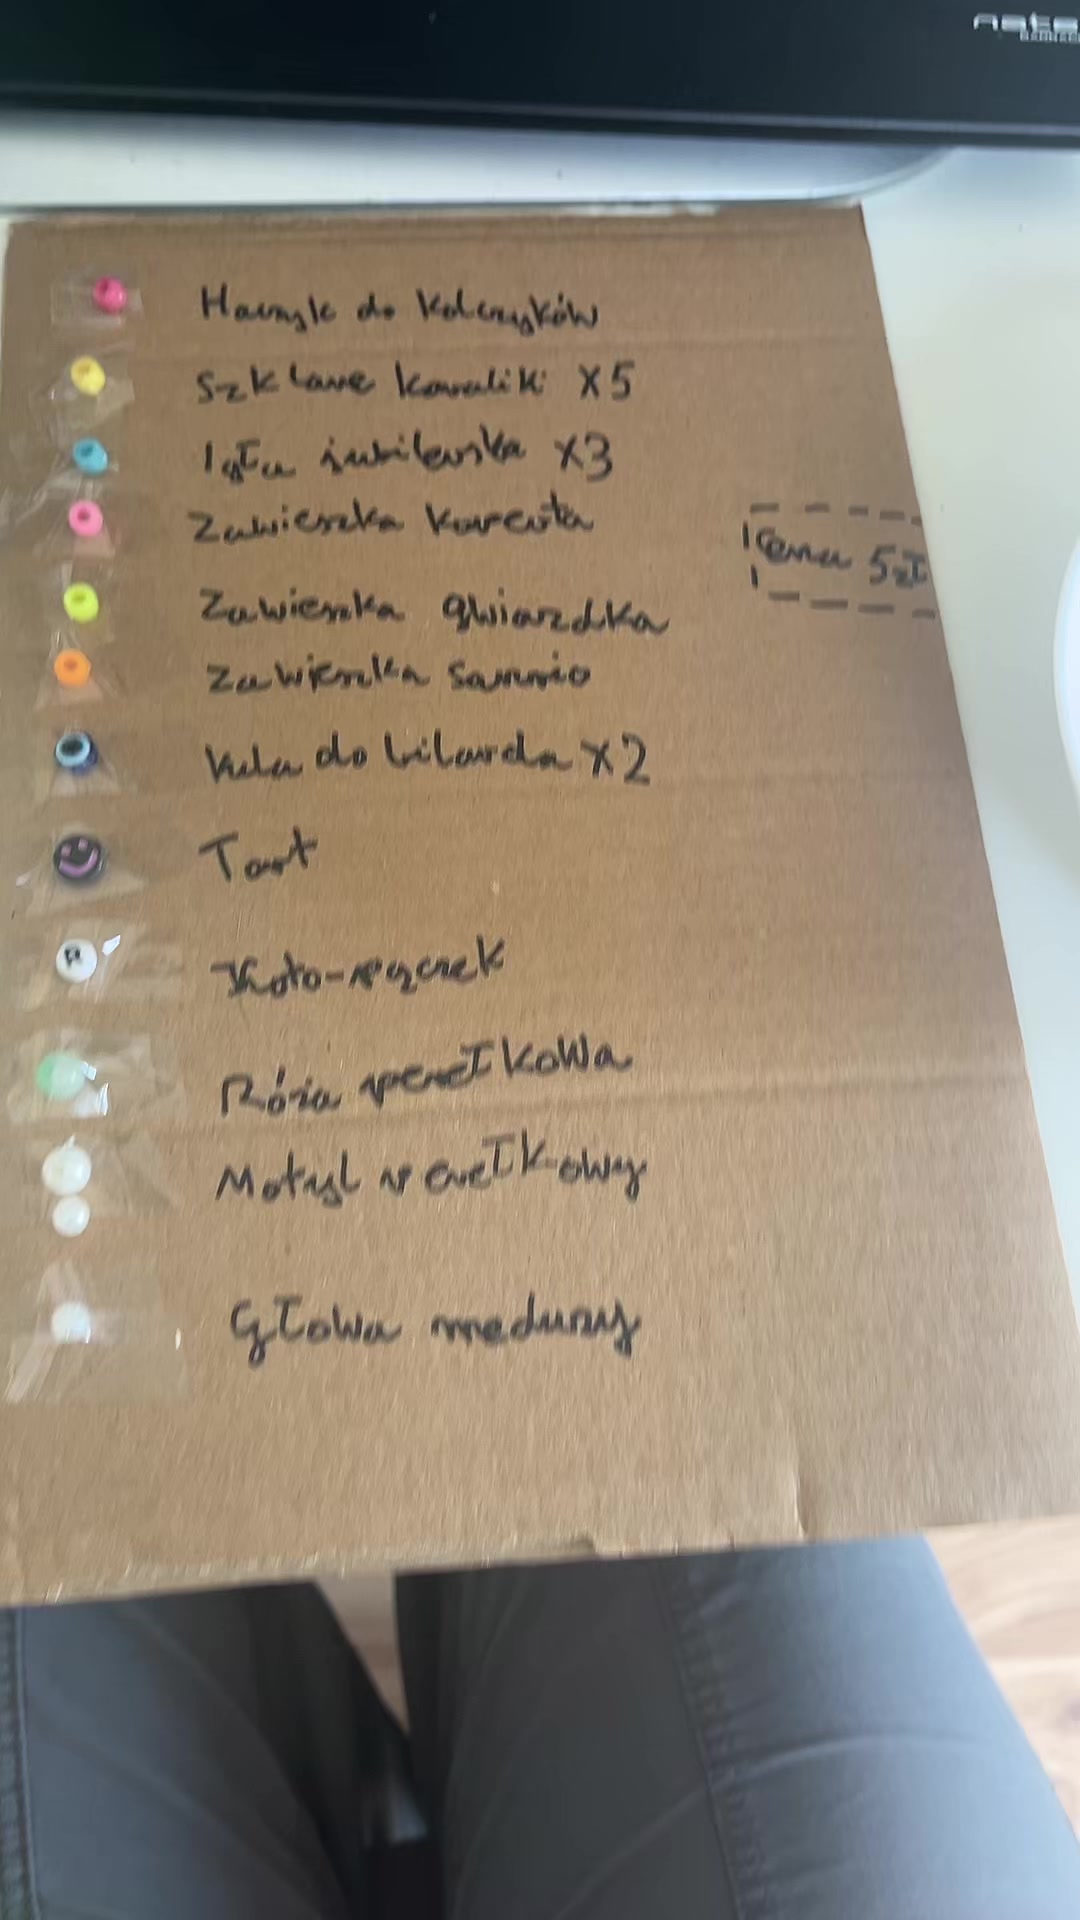 Haczyk do kolczyków
Szklane koraliki x5
Igła jubilerska x3
Zawieszka kareta
Cena 5zł
Zawieszka gwiazdka
Zawieszka sanrio
Kula do bilarda x2
Tort
Koto-pączek
Róża perełkowa
Motyl perełkowy
Głowa meduzy
R